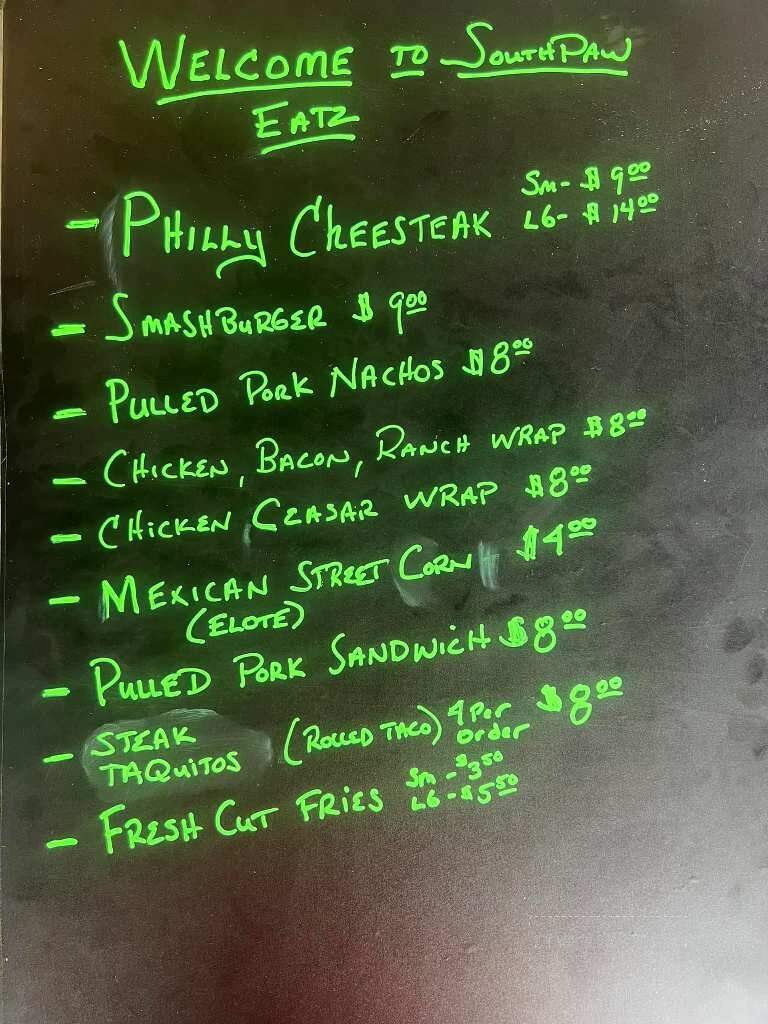 WELCOME TO SOUTHPAW
EATZ
- PHILLY CHEESTEAK Sm- $ 9.00
LG- $ 14.00
- SMASHBURGER $ 9.00
- PULLED PORK NACHOS $8.00
- CHICKEN, BACON, RANCH WRAP $8.00
- CHICKEN CEASAR WRAP $8.00
- MEXICAN STREET CORN $4.00
(ELOTE)
- PULLED PORK SANDWICH $8.00
- STEAK TAQUITOS (ROLLED TACO) 4 Per Order $8.00
- FRESH CUT FRIES Sm - $3.50
LG - $5.50